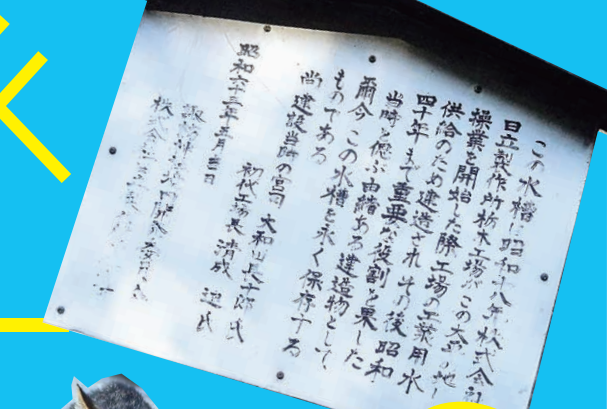 この水槽は昭和十八年株式会社
日立製作所栃木工場がこの大平の地に
操業を開始した際工場の工業用水
供給のため建造され その後 昭和
四十年まで重要な役割を果した
当時を偲ぶ由緒ある建造物として
爾今 この水槽を永く保存する
ものである
尚建設当時の宮司 大和田長十郎 氏
初代工場長 清成 迪 氏
昭和六十三年五月吉日
諏訪神社
株式会社日立製作所